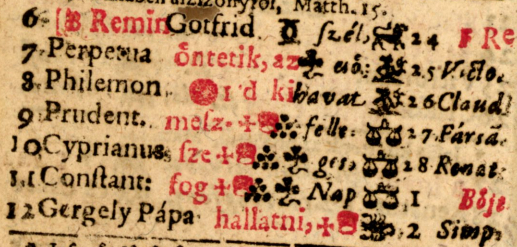 Matth. 15.
6. [B Remin Gotfrid szél, 24 F Re
7. Perpetua öntetik, az eső: 25 Victo.
8. Philemon 1 d ki havat 26 Claud
9 Prudent. mesz- felle: 27 Fársã
10 Cyprianus sze ges, 28 Renat:
11 Constant: fog Nap 1 Bője
12 Gergely Pápa hallatni, 2 Simp